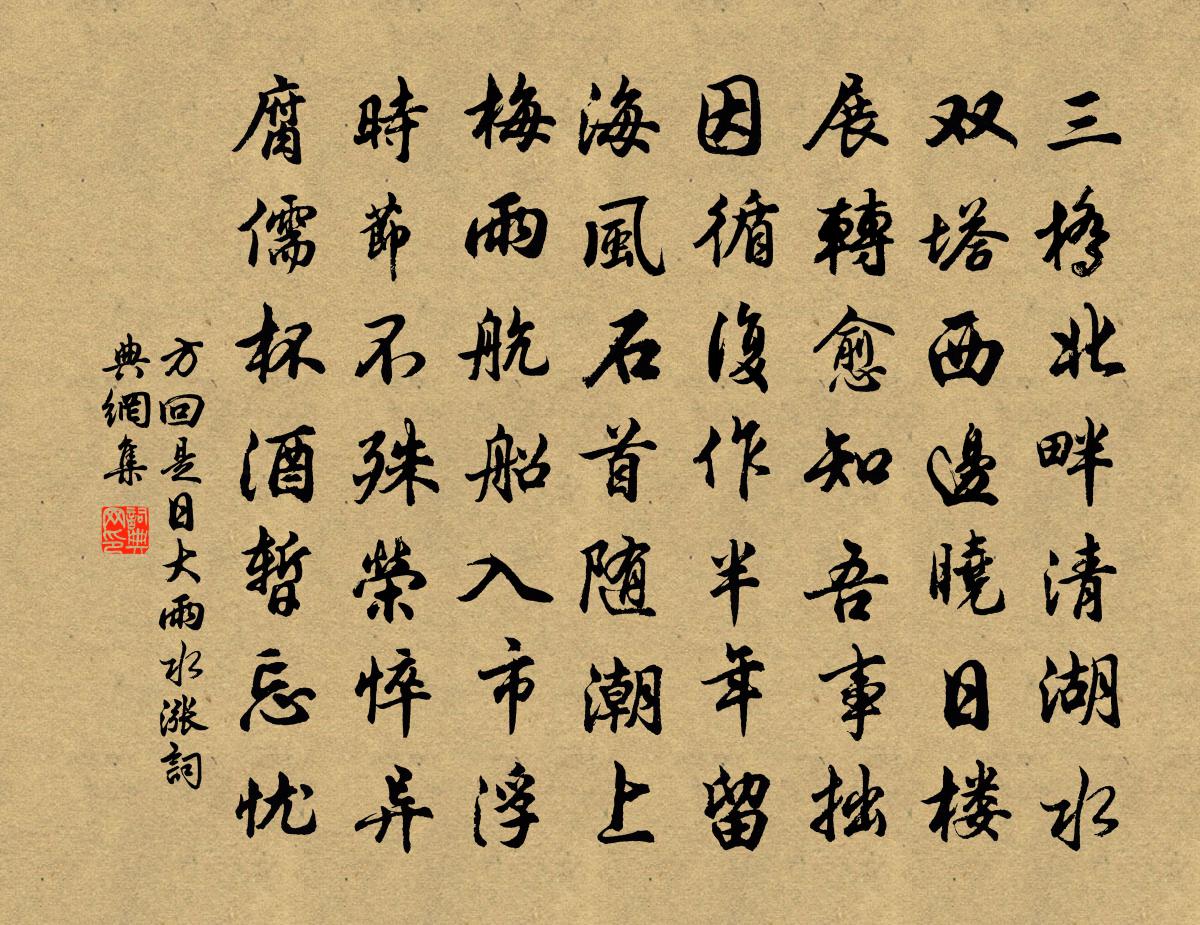 三橋北畔清湖水
双塔西邊曉日楼
展轉愈知吾事拙
因循復作半年留
海風石首随潮上
梅雨航船入市浮
時節不殊榮悴异
腐儒杯酒暫忘忧
方回是日大雨水漲詞
典網集
詞典
网印